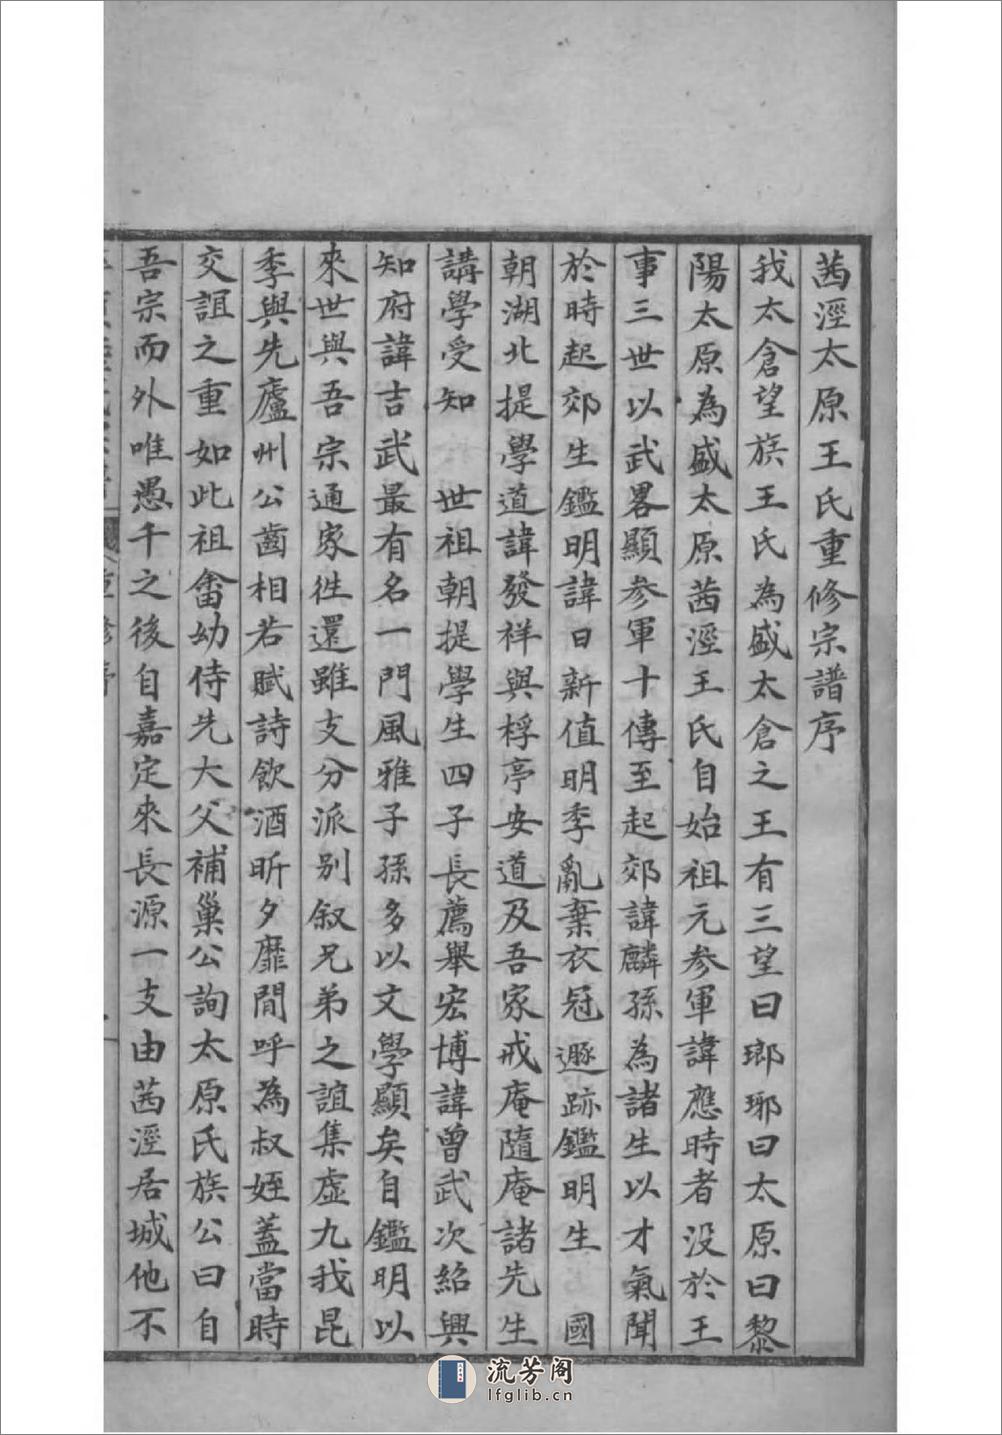 茜涇太原王氏重修宗譜序
我太倉望族王氏為盛太倉之王有三望曰瑯琊曰太原曰黎
陽太原為盛太原茜涇王氏自始祖元參軍諱應時者没於王
事三世以武畧顯參軍十傳至起郊諱麟孫為諸生以才氣聞
於時起郊生鑑明諱日新值明季亂棄衣冠遯跡鑑明生 國
朝湖北提學道諱發祥與桴亭安道及吾家戒庵隨庵諸先生
講學受知 世祖朝提學生四子長薦舉宏博諱曾武次紹興
知府諱吉武最有名一門風雅子孫多以文學顯矣自鑑明以
來世與吾宗通家徃還雖支分派别叙兄弟之誼集虛九我昆
季與先廬州公齒相若賦詩飲酒昕夕靡間呼為叔姪蓋當時
交誼之重如此祖畬幼侍先大父補巢公詢太原氏族公曰自
吾宗而外唯愚千之後自嘉定來長源一支由茜涇居城他不
流芳阁
lfglib.cn